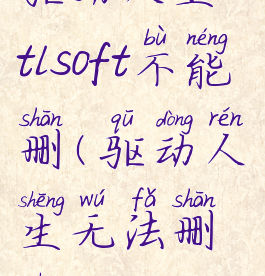 bù néng
tlsoft不能
shān qū dòng rén
删(驱动人
shēng wú fǎ shān
生无法删